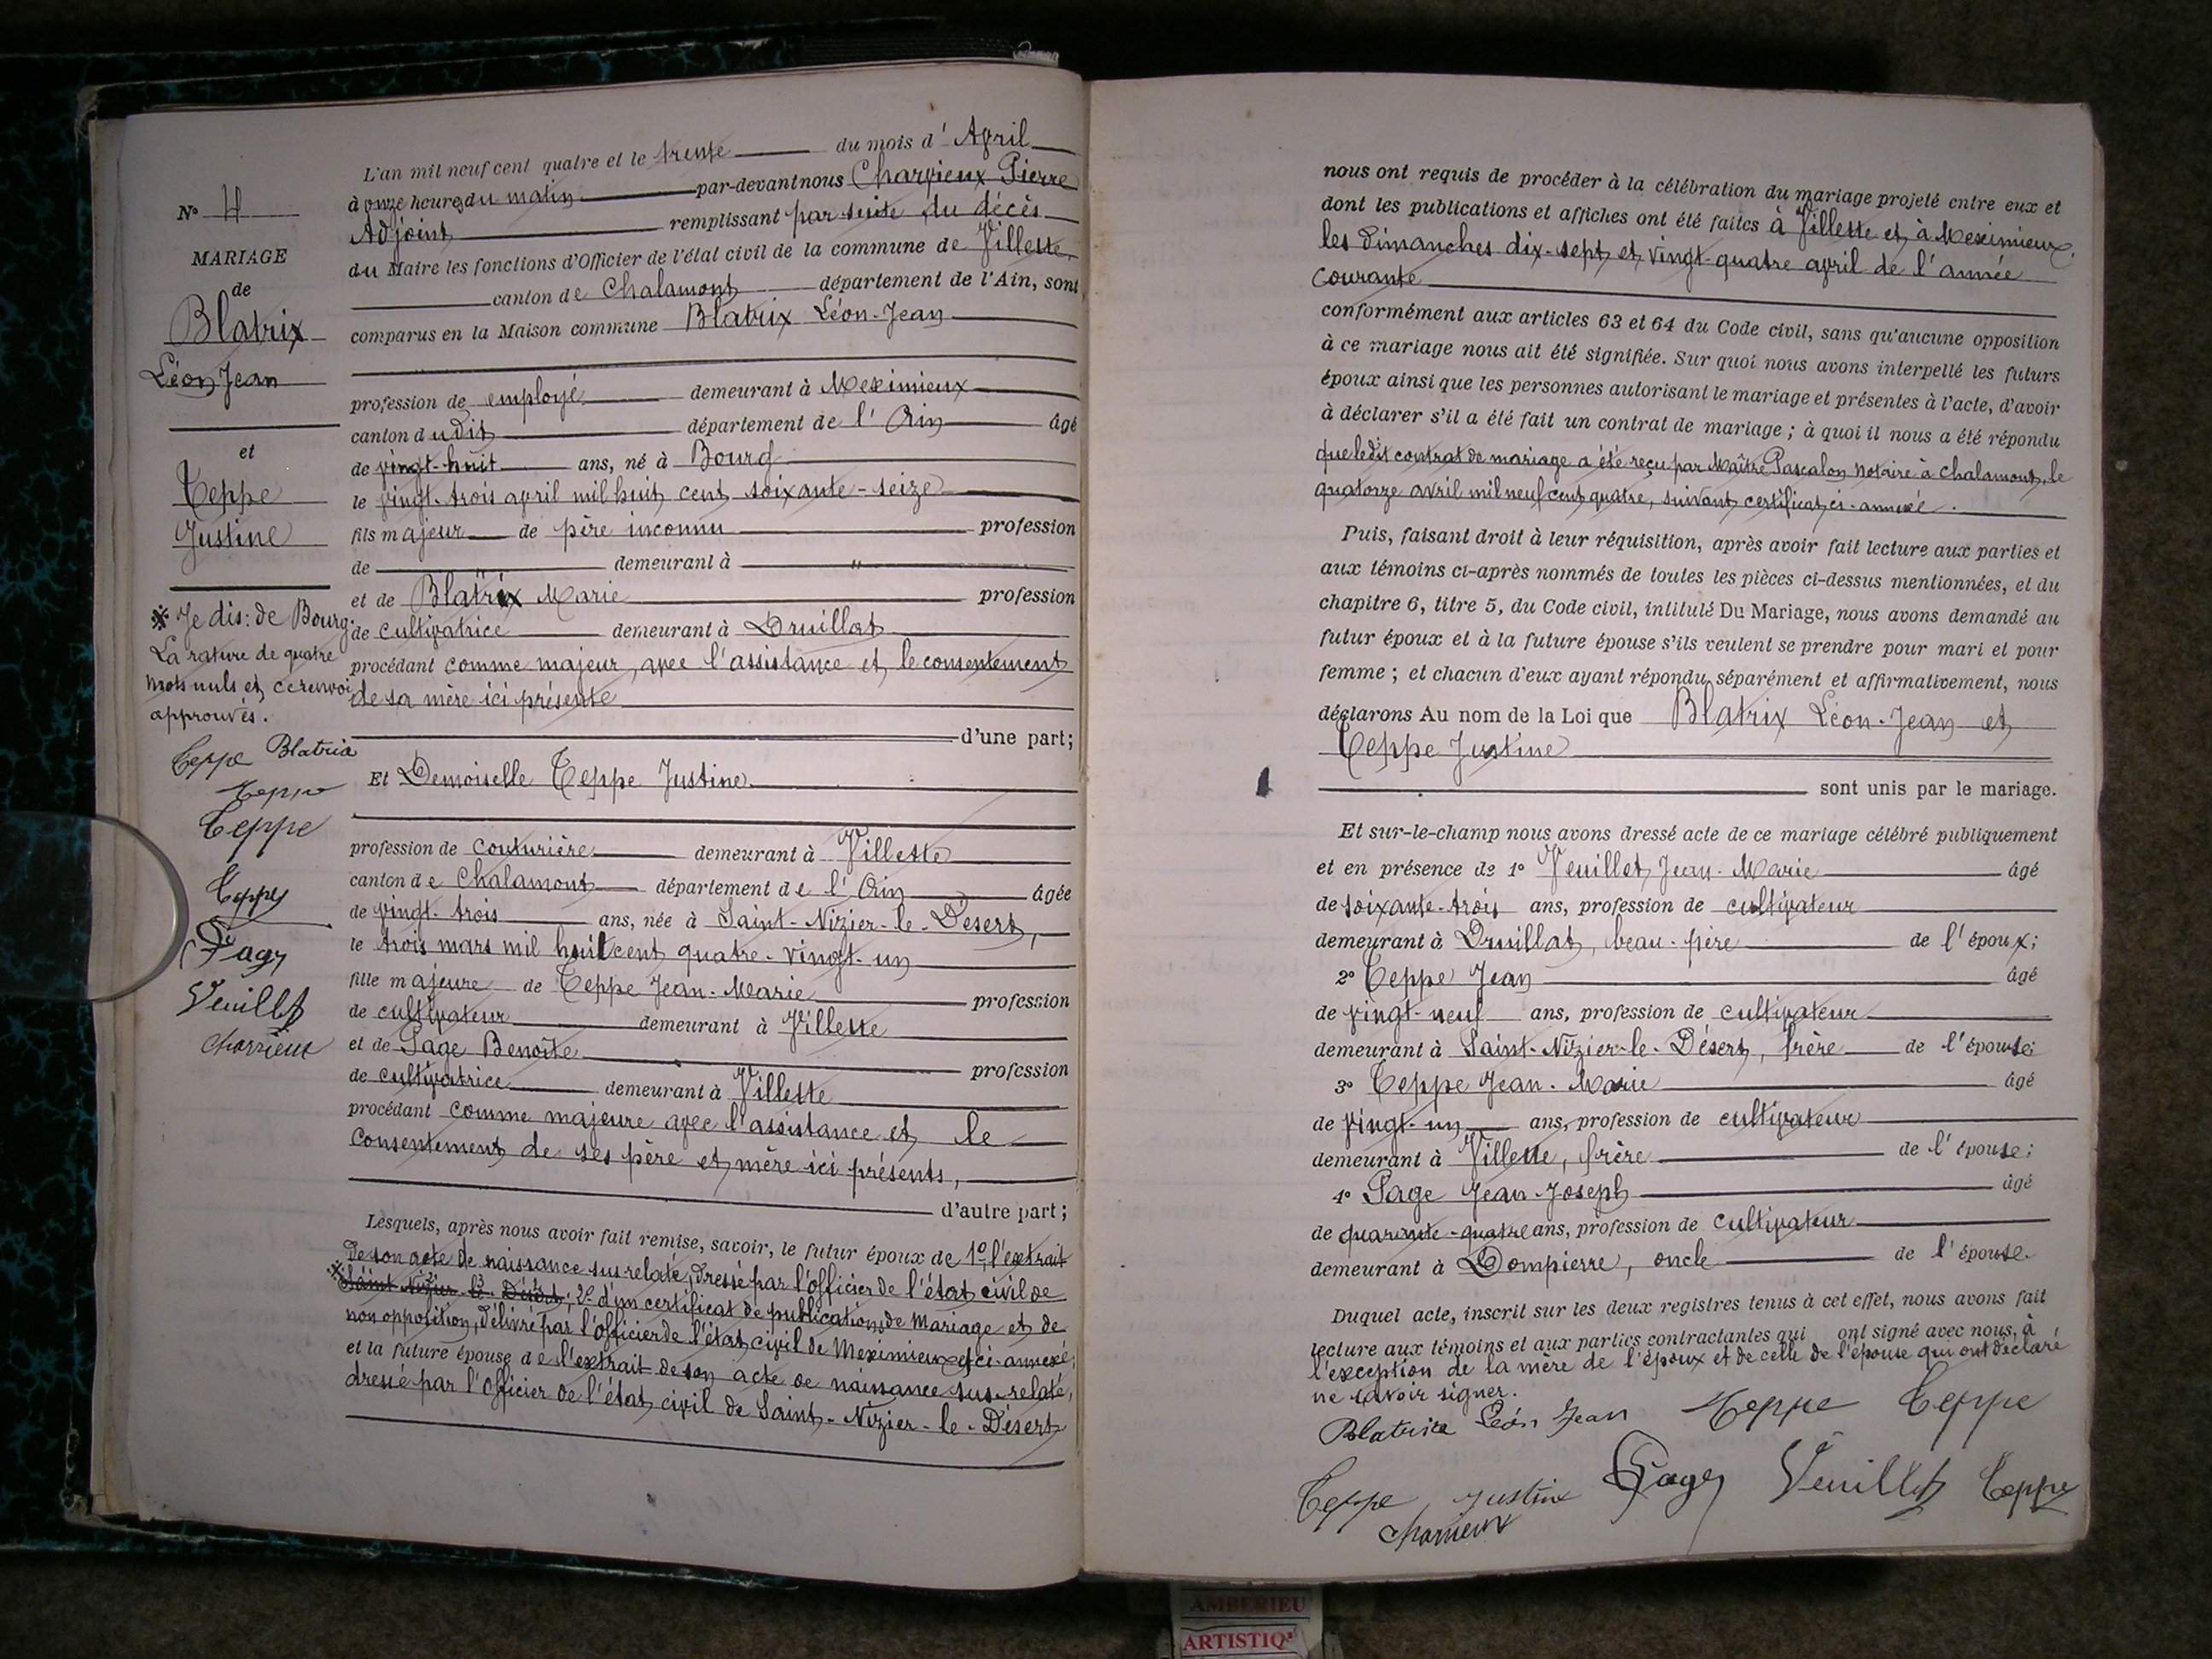 N° 4
MARIAGE
de
Blatrix
Léon Jean
et
Teppe
Justine
※ Je dis: de Bourg.
La rature de quatre
mots nuls et ce renvoi
approuvés.
Teppe Blatrix
Teppe
Teppe
Teppe
Page
Veuillet
Charvieux
L'an mil neuf cent quatre et le trente du mois d' Avril
à onze heures du matin par-devant nous Charvieux Pierre
Adjoint remplissant par suite du décès
du Maire les fonctions d'Officier de l'état civil de la commune de Villette,
canton de Chalamont département de l'Ain, sont
comparus en la Maison commune Blatrix Léon-Jean
profession de employé demeurant à Meximieux
canton dudit département de l' Ain âgé
de vingt-huit ans, né à Bourg
le vingt-trois avril mil huit cent soixante-seize
fils majeur de père inconnu profession
de demeurant à "
et de Blatrix Marie profession
de cultivatrice demeurant à Druillat
procédant comme majeur, avec l'assistance et le consentement
de sa mère ici présente
d'une part;
Et Demoiselle Teppe Justine
profession de couturière demeurant à Villette
canton de Chalamont département de l' Ain âgée
de vingt-trois ans, née à Saint-Nizier-le-Désert,
le trois mars mil huit cent quatre-vingt-un
fille majeure de Teppe Jean-Marie profession
de cultivateur demeurant à Villette
et de Page Benoîte profession
de cultivatrice demeurant à Villette
procédant comme majeure avec l'assistance et le
consentement de ses père et mère ici présents,
d'autre part;
Lesquels, après nous avoir fait remise, savoir, le futur époux de 1° l'extrait
de son acte de naissance sus-relaté, dressé par l'officier de l'état civil de
※ Saint-Nizier-le-Désert; 2° d'un certificat de publications de Mariage et de
non opposition, délivré par l'officier de l'état civil de Meximieux et ci-annexé;
et la future épouse de l'extrait de son acte de naissance sus-relaté,
dressé par l'Officier de l'état civil de Saint-Nizier-le-Désert
nous ont requis de procéder à la célébration du mariage projeté entre eux et
dont les publications et affiches ont été faites à Villette et à Meximieux,
les dimanches dix-sept et vingt-quatre avril de l'année
courante
conformément aux articles 63 et 64 du Code civil, sans qu'aucune opposition
à ce mariage nous ait été signifiée. Sur quoi nous avons interpellé les futurs
époux ainsi que les personnes autorisant le mariage et présentes à l'acte, d'avoir
à déclarer s'il a été fait un contrat de mariage; à quoi il nous a été répondu
que ledit contrat de mariage a été reçu par Maître Pascalon notaire à Chalamont, le
quatorze avril mil neuf cent quatre, suivant certificat ci-annexé.
Puis, faisant droit à leur réquisition, après avoir fait lecture aux parties et
aux témoins ci-après nommés de toutes les pièces ci-dessus mentionnées, et du
chapitre 6, titre 5, du Code civil, intitulé Du Mariage, nous avons demandé au
futur époux et à la future épouse s'ils veulent se prendre pour mari et pour
femme; et chacun d'eux ayant répondu séparément et affirmativement, nous
déclarons Au nom de la Loi que Blatrix Léon-Jean et
Teppe Justine
sont unis par le mariage.
Et sur-le-champ nous avons dressé acte de ce mariage célébré publiquement
et en présence de 1° Veuillet Jean-Marie âgé
de soixante-trois ans, profession de cultivateur
demeurant à Druillat, beau-père de l'époux;
2° Teppe Jean âgé
de vingt-neuf ans, profession de cultivateur
demeurant à Saint-Nizier-le-Désert, frère de l'épouse;
3° Teppe Jean-Marie âgé
de vingt-un ans, profession de cultivateur
demeurant à Villette, frère de l'épouse;
4° Page Jean-Joseph âgé
de quarante-quatre ans, profession de cultivateur
demeurant à Dompierre, oncle de l'épouse.
Duquel acte, inscrit sur les deux registres tenus à cet effet, nous avons fait
lecture aux témoins et aux parties contractantes qui ont signé avec nous, à
l'exception de la mère de l'époux et de celle de l'épouse qui ont déclaré
ne savoir signer.
Blatrix Léon Jean Teppe Teppe
Teppe Justine Page Veuillet Teppe
Charvieux
AMBERIEU
ARTISTIQ